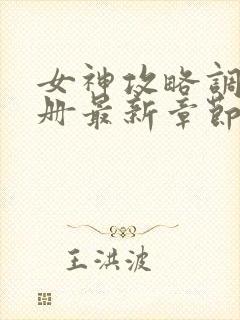 女神攻略調
册最新章節
王洪波